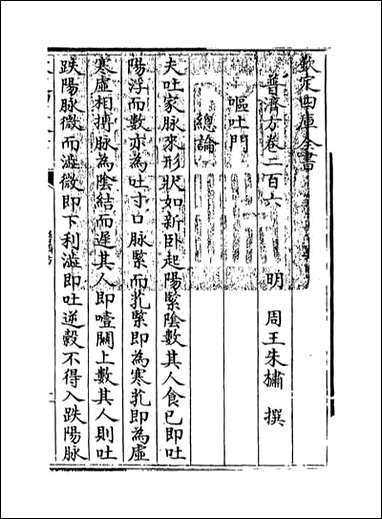 欽定四庫全書
普濟方卷二百六
明 周王朱橚 撰
嘔吐門
總論
夫吐家脉來形狀如新卧起陽緊隂數其人食已即吐
陽浮而數亦為吐寸口脉緊而芤緊即為寒芤即為虛
寒虛相搏脉為隂結而遲其人即噎關上數其人則吐
趺陽脉微而澁微即下利澁即吐逆糓不得入趺陽脉